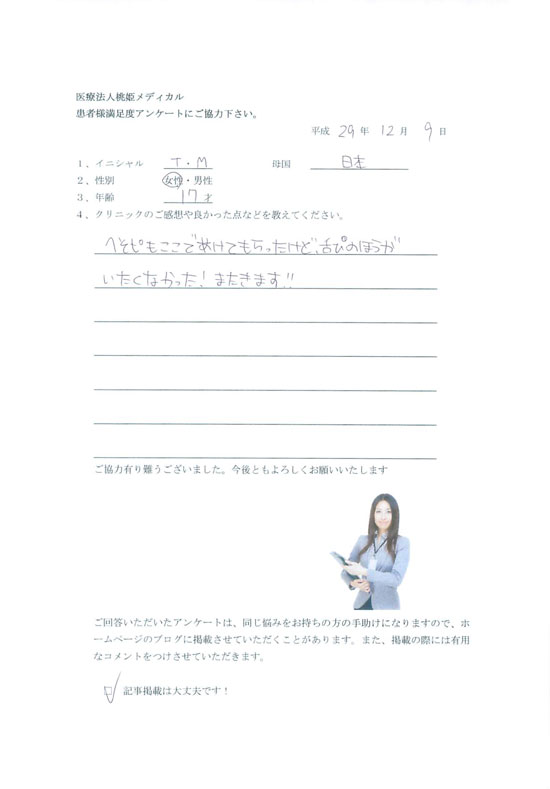 医療法人桃姫メディカル
患者様満足度アンケートにご協力下さい。
平成 29 年 12 月 9 日
1、イニシャル T・M 母国 日本
2、性別 女性・男性
3、年齢 17 才
4、クリニックのご感想や良かった点などを教えてください。
へそピもここであけてもらったけど、舌ぴのほうが
いたくなかった! またきます!!
ご協力有り難うございました。今後ともよろしくお願いいたします
ご回答いただいたアンケートは、同じ悩みをお持ちの方の手助けになりますので、ホ
ームページのブログに掲載させていただくことがあります。また、掲載の際には有用
なコメントをつけさせていただきます。
記事掲載は大丈夫です!